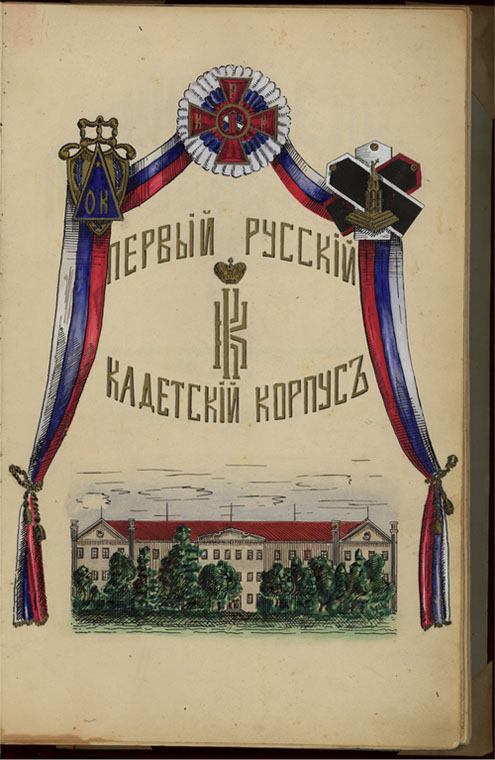 ОК
ПЕРВЫЙ РУССКІЙ
КАДЕТСКІЙ КОРПУСЪ